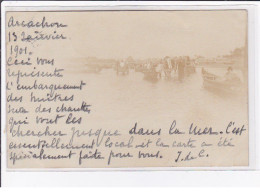 Arcachon
13 Janvier
1901.
Ceci vous
représente
l'embarquement
des huîtres
sur des chantes
qui vont les
chercher jusque dans la mer. C'est
essentiellement local et la carte a été
spécialement faite pour vous. J. de C.